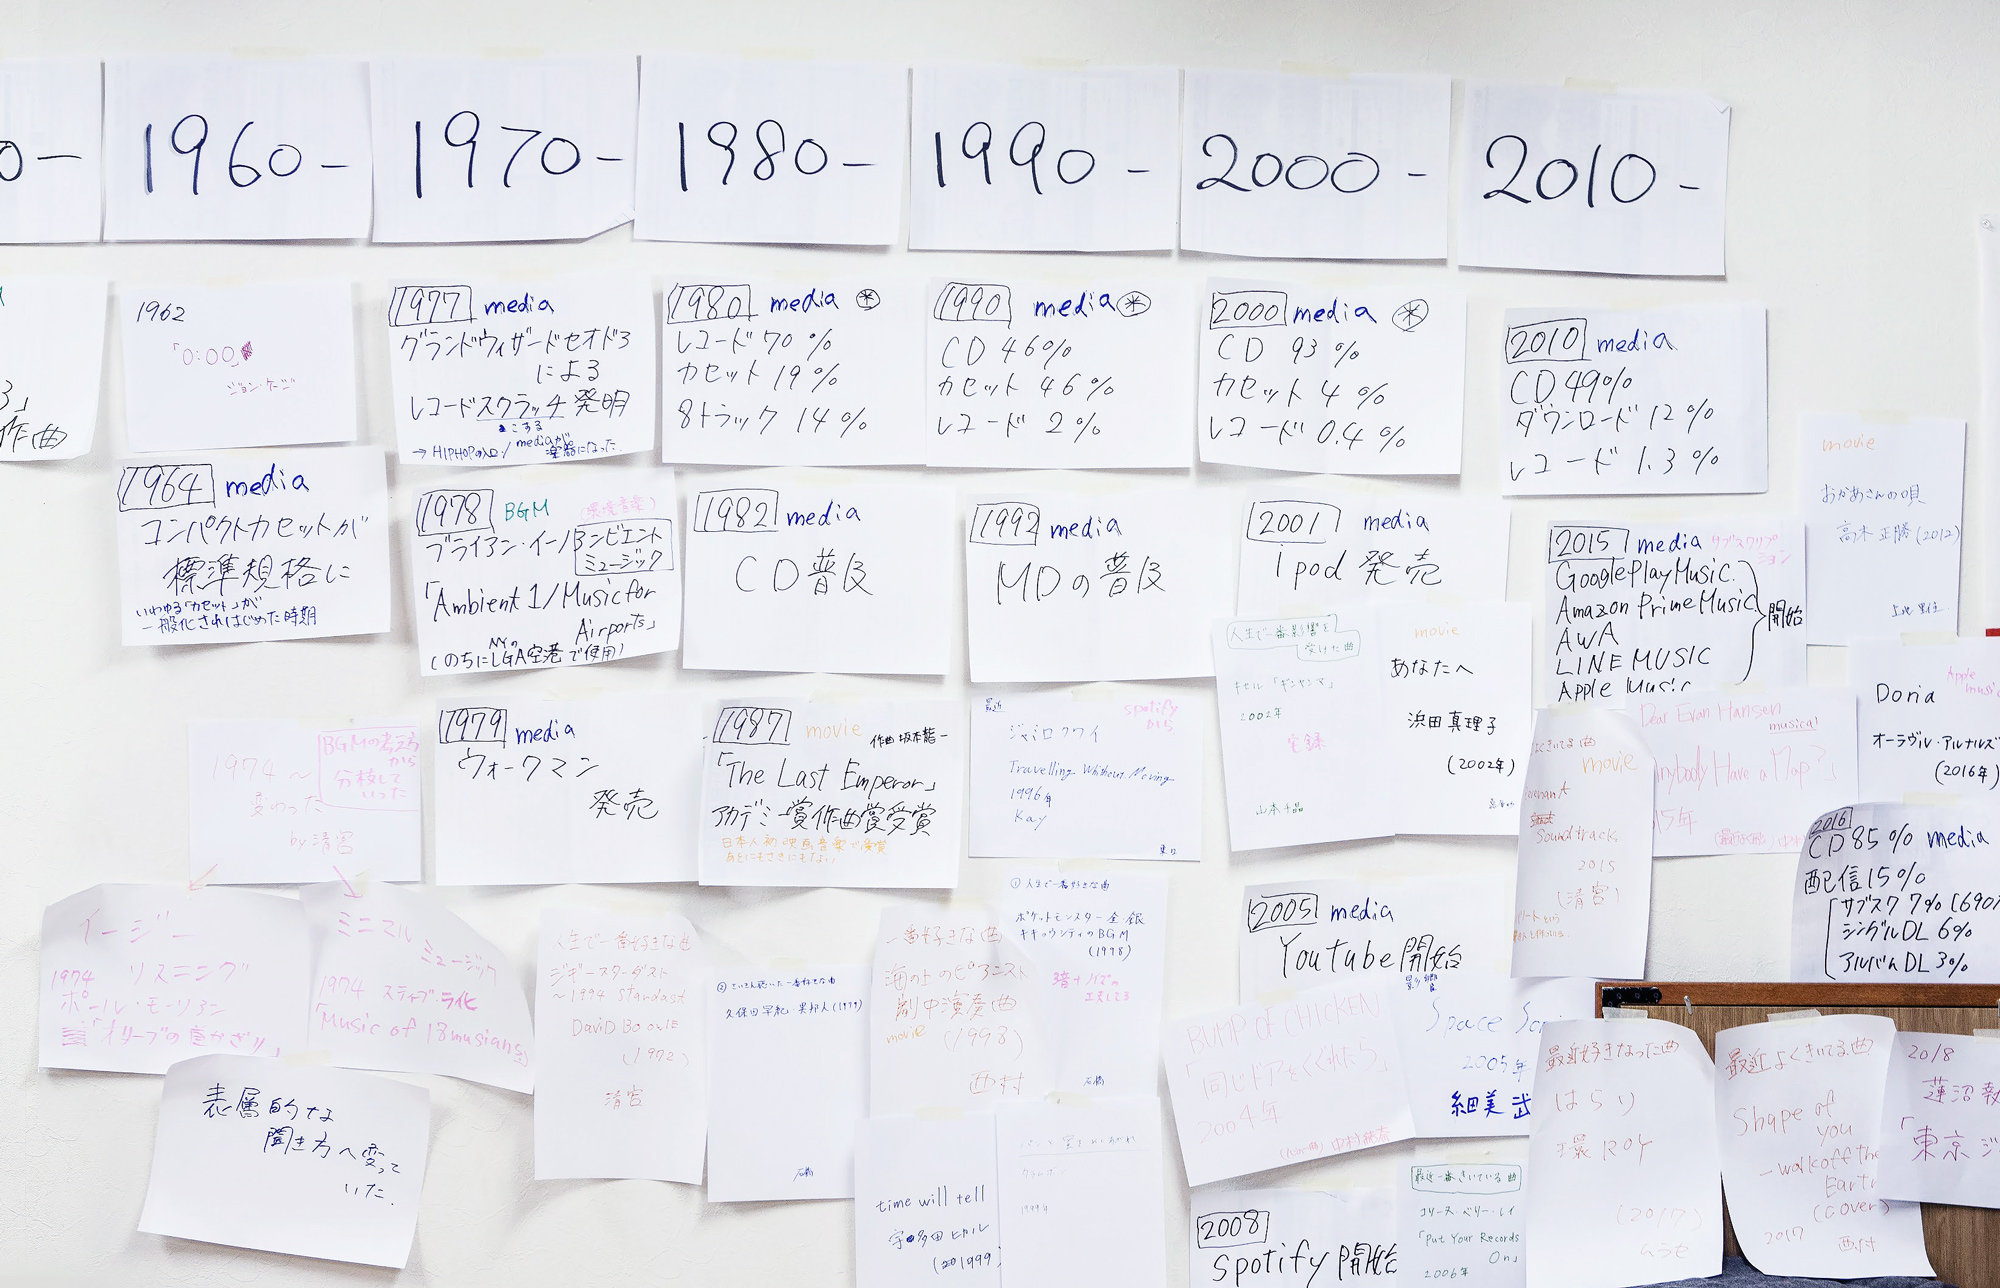 0-
1960-
1970-
1980-
1990-
2000-
2010-
3」
作曲
1962
「0:00」
ジョン・ケージ
1964 media
コンパクトカセットが
標準規格に
いわゆる「カセット」が
一般化されはじめた時期
1974~
変わった
by 清宮
BGMの考え方
から
分枝して
いった
イージー
リスニング
1974
ポール・モーリアン
ミニマル
ミュージック
1974 スティブ・ライヒ
「Music of 18musians」
表層的な
聞き方へ変って
いた.
1977 media
グランドウィザードセオドラ
による
レコードスクラッチ発明
こする
→HIPHOPの入口/mediaが
楽器になった
1978 BGM (環境音楽)
ブライアン・イーノ アンビエント
ミュージック
「Ambient 1/Music for
Airports」
NYの
(のちにLGA空港で使用)
1979 media
ウォークマン
発売
人生で一番好きな曲
ジギースターダスト
David Bowie
(1972)
清宮
1980 media *
レコード 70%
カセット 19%
8トラック 14%
1982 media
CD普及
1987 movie 作曲 坂本龍一
「The Last Emperor」
アカデミー賞作曲賞受賞
日本人初 映画音楽で受賞
あとにもさきにもない
②
久保田早紀・異邦人(1979)
石橋
1990 media *
CD 46%
カセット 46%
レコード 2%
1992 media
MDの普及
最近
spotify
から
ジャミロクワイ
Travelling Without Moving
1996年
Kay
①人生で一番好きな曲
ポケットモンスター金・銀
キキョウシティのBGM
(1998)
石橋
一番好きな曲
海の上のピアニスト
劇中演奏曲
movie (1998)
西村
time will tell
宇多田ヒカル
(1999)
1999年
2000 media *
CD 93%
カセット 4%
レコード 0.4%
2001 media
ipod 発売
人生で一番影響を
受けた曲
キセル「ギンヤンマ」
2002年
山本千晶
movie
あなたへ
浜田真理子
(2002年)
2005 media
Youtube開始
BUMP OF CHICKEN
「同じドアをくぐれたら」
2004年
Space
2005年
細美武
2008
Spotify 開始
最近一番きいている曲
コリーヌ・ベリー・レイ
「Put Your Records
On」
2006年
2010 media
CD 49%
ダウンロード 12%
レコード 1.3%
2015 media サブスクリプ
ション
GooglePlayMusic.
Amazon PrimeMusic
AWA
LINE MUSIC
Apple Music
開始
movie
おかあさんの唄
高木正勝(2012)
Doria
Apple
music
オーラヴル・アルナルズ
(2016年)
Dear Evan Hansen
musical
nybody Have a Map?」
15年
よくきいてる曲
movie
Soundtrack
2015
(清宮)
2016
CD 85% media
配信15%
サブスク 7% (690
シングルDL 6%
アルバムDL 3%
最近好きなった曲
はらり
環ROY
(2017)
ムラセ
最近よくきいてる曲
Shape of
you
-walk off the
Earth
(cover)
2017 西村
2018
蓮沼執
「東京ジ